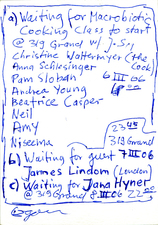 a) Waiting for Macrobiotic
Cooking Class to start
@ 319 Grand w/ J.S.,
Christine Waltermyer (the
Anna Schlesinger Cook
Pam Sloban 6 III 06
Andrea Young
Beatrice Casper
Neil
Amy 23 45
Niseema 319 Grand
b) Waiting for guest 7 III 06
James Lindom (London)
c) Waiting for Jana Hyner
@ 319 Grand 8 III 06 22 00